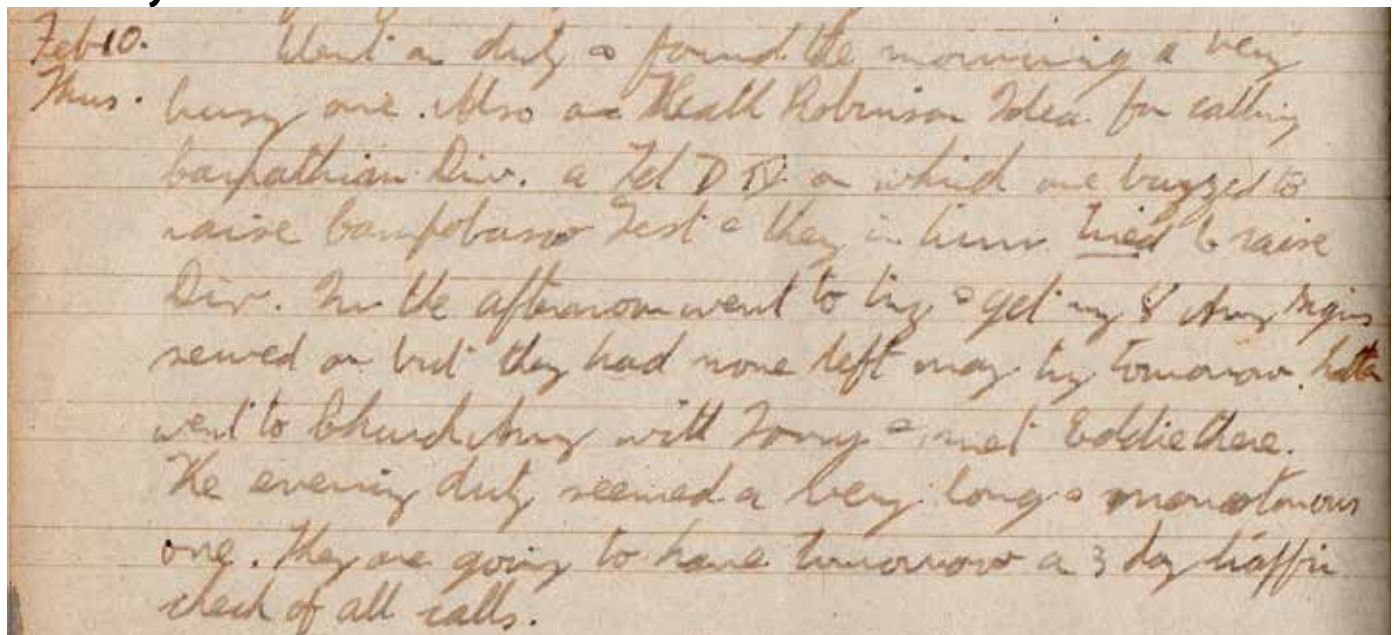 Feb 10. Went on duty & found the morning a very
Thus. busy one. Also a Heath Robinson Idea for calling
Carpathian Div. a Tel D IV on which one buzzed to
raise Campobasso Test & they in turn tried to raise
Div. In the afternoon went to try & get my 8 Army signs
sewed on but they had none left may try tomorrow. Later
went to Church Army with Tommy & met Eddie there.
The evening duty seemed a very long & monotonous
one. They are going to have tomorrow a 3 day traffic
check of all calls.